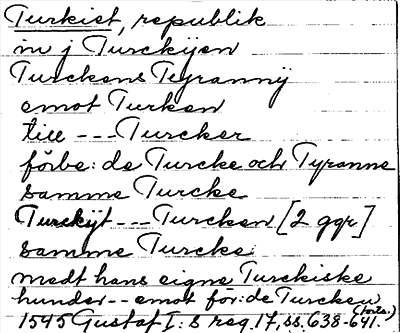 Turkist, republik
in j Turckijen
Turckens Tyrannÿ
emot Turken
till --- Turcker
förbe: de Turcke och Tyranne
samme Turcke
Turckijt --- Turcken [2 ggr]
samme Turcke
medt hans eigne Turckiske
hunder -- emot för: de Turcken
1545 Gustaf I:s reg. 17, ss. 638-641.